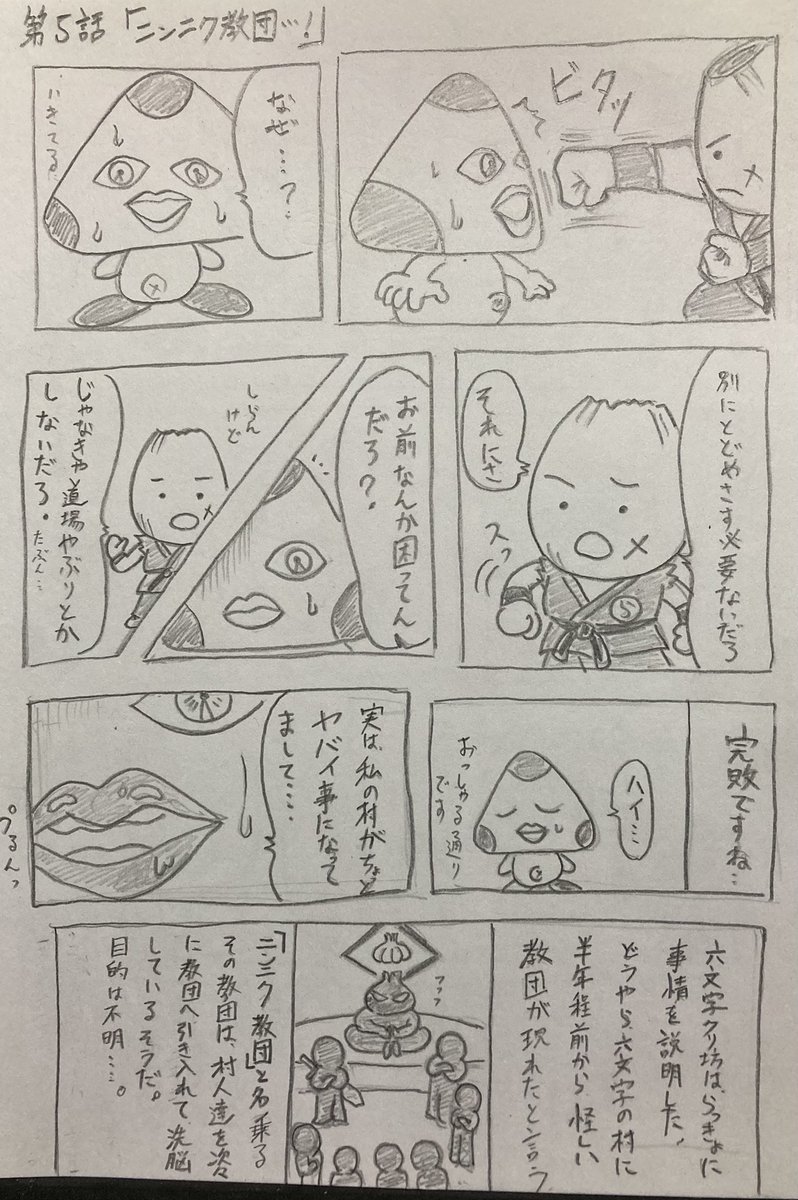 第5話「ニンニク教団…!」
ビタッ
なぜ…?
…いきてる…
別にとどめさす必要ないだろ
それにさ
スッ
お前なんか困ってん
だろ?
しらん
けど
じゃなきゃ道場やぶりとか
しないだろ。
たぶん…
完敗ですね…
ハイ…
おっしゃる通り
です
実は、私の村がちょと
ヤバイ事になって
まして…
ぷるんっ
六文字クリ坊は、らっきょに
事情を説明した。
どうやら、六文字の村に
半年程前から、怪しい
教団が現れたと言う
ファファ
「ニンニク教団」と名乗る
その教団は、村人達を次々
に教団へ引き入れて洗脳
しているそうだ。
目的は不明…。